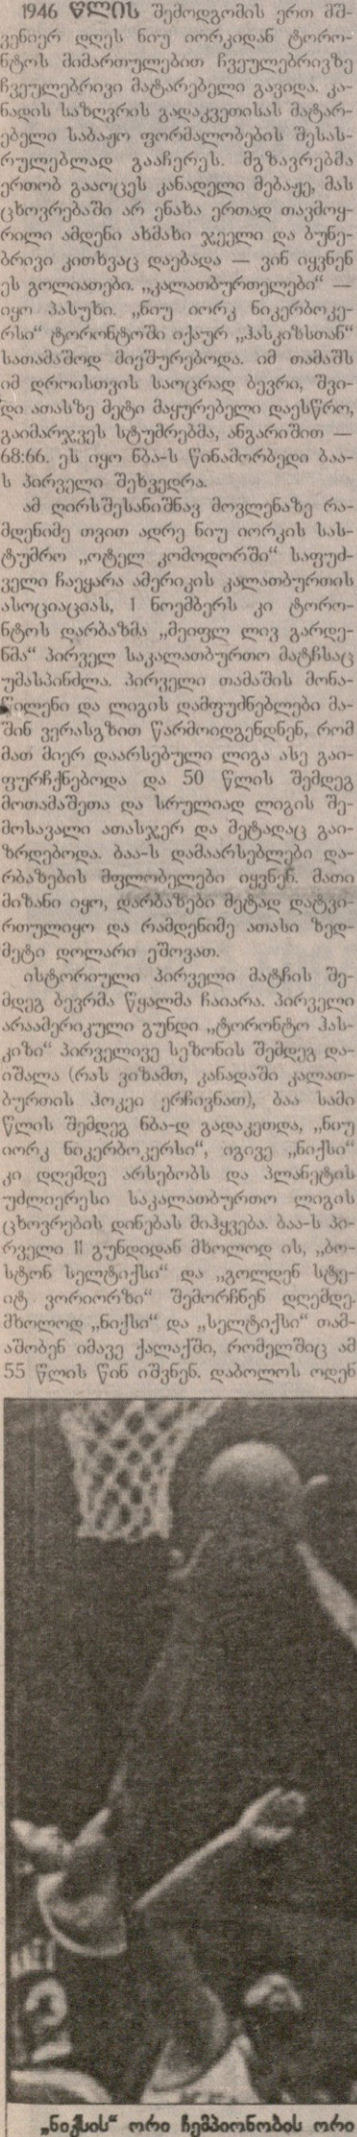 1946 წლის შემოდგომის ერთ მშ-
ვენიერ დღეს ნიუ იორკიდან ტორო-
ნტოს მიმართულებით ჩვეულებრივზე
ჩვეულებრივი მატარებელი გავიდა. კა-
ნადის საზღვრის გადაკვეთისას მატარ-
ებელი საბაჟო ფორმალობების შესას-
რულებლად გააჩერეს. მგზავრებმა
ერთობ გააოცეს კანადელი მებაჟე, მას
ცხოვრებაში არ ენახა ერთად თავმოყ-
რილი ამდენი ახმახი ჯეელი და ბუნე-
ბრივი კითხვაც დაებადა — ვინ იყვნენ
ეს გოლიათები. „კალათბურთელები“ —
იყო პასუხი. „ნიუ იორკ ნიკერბოკე-
რსი“ ტორონტოში იქაურ „ჰასკიზსთან“
სათამაშოდ მიემურებოდა. იმ თამაშს
იმ დროისთვის საოცრად ბევრი, შვი-
დი ათასზე მეტი მაყურებელი დაესწრო,
გაიმარჯვეს სტუმრებმა, ანგარიშით —
68:66. ეს იყო ნბა-ს წინამორბედი ბაა-
ს პირველი შეხვედრა.
ამ ღირსშესანიშნავ მოვლენაზე რა-
მდენიმე თვით ადრე ნიუ იორკის სას-
ტუმრო „ოტელ კომოდორში“ საფუძ-
ველი ჩაეყარა ამერიკის კალათბურთის
ასოციაციას, 1 ნოემბერს კი ტორო-
ნტოს დარბაზმა „მეიფლ ლივ გარდე-
ნმა“ პირველ საკალათბურთო მატჩსაც
უმასპინძლა. პირველი თამაშის მონა-
წილენი და ლიგის დამფუძნებლები მა-
შინ ვერასგზით წარმოიდგენდნენ, რომ
მათ მიერ დაარსებული ლიგა ასე გაი-
ფურჩქნებოდა და 50 წლის შემდეგ
მოთამაშეთა და სრულიად ლიგის შე-
მოსავალი ათასჯერ და მეტადაც გაი-
ზრდებოდა. ბაა-ს დამაარსებლები და-
რბაზების მფლობელები იყვნენ. მათი
მიზანი იყო, დარბაზები მეტად დატვი-
რთულიყო და რამდენიმე ათასი ზედ-
მეტი დოლარი ეშოვათ.
ისტორიული პირველი მატჩის შე-
მდეგ ბევრმა წყალმა ჩაიარა. პირველი
არაამერიკული გუნდი „ტორონტო ჰას-
კიზი“ პირველივე სეზონის შემდეგ და-
იშალა (რას ვიზამთ, კანადაში კალათ-
ბურთის ჰოკეი ერჩივნათ), ბაა სამი
წლის შემდეგ ნბა-დ გადაკეთდა, „ნიუ
იორკ ნიკერბოკერსი“, იგივე „ნიქსი“
კი დღემდე არსებობს და პლანეტის
უძლიერესი საკალათბურთო ლიგის
ცხოვრების დინებას მიჰყვება. ბაა-ს პი-
რველი 11 გუნდიდან მხოლოდ ის, „ბო-
სტონ სელტიქსი“ და „გოლდენ სტე-
იტ ვორიორზი“ შემორჩნენ დღემდე.
მხოლოდ „ნიქსი“ და „სელტიქსი“ თამ-
აშობენ იმავე ქალაქში, რომელშიც ამ
55 წლის წინ იშვნენ. დაბოლოს ოდენ
„ნიქსის“ ორი ჩემპიონობის ორი